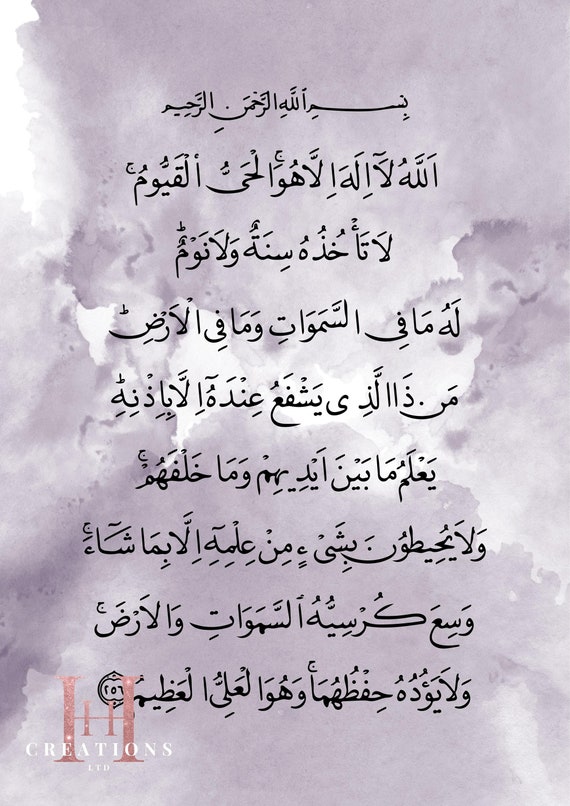 بِسْمِ ٱللَّهِ الرَّحْمَنِ الرَّحِيمِ
اَللَّهُ لَآ اِلَهَ اِلَّا هُوَۚ الْحَىُّ الْقَيُّومُۚ
لَا تَأْخُذُهُ سِنَةٌ وَلَا نَوْمٌؕ
لَهُ مَا فِى السَّمَوَاتِ وَمَا فِى الْاَرْضِؕ
مَنْ ذَا الَّذِى يَشْفَعُ عِنْدَهُٓ اِلَّا بِاِذْنِهِؕ
يَعْلَمُ مَا بَيْنَ اَيْدِيهِمْ وَمَا خَلْفَهُمْۚ
وَلَا يُحِيطُونَ بِشَىْءٍ مِنْ عِلْمِهِٓ اِلَّا بِمَا شَآءَۚ
وَسِعَ كُرْسِيُّهُ ٱلسَّمَوَاتِ وَالْاَرْضَۚ
وَلَا يَؤُدُهُ حِفْظُهُمَاۚ وَهُوَ الْعَلِىُّ الْعَظِيمُ ٢٥٦
HH
CREATIONS
LTD